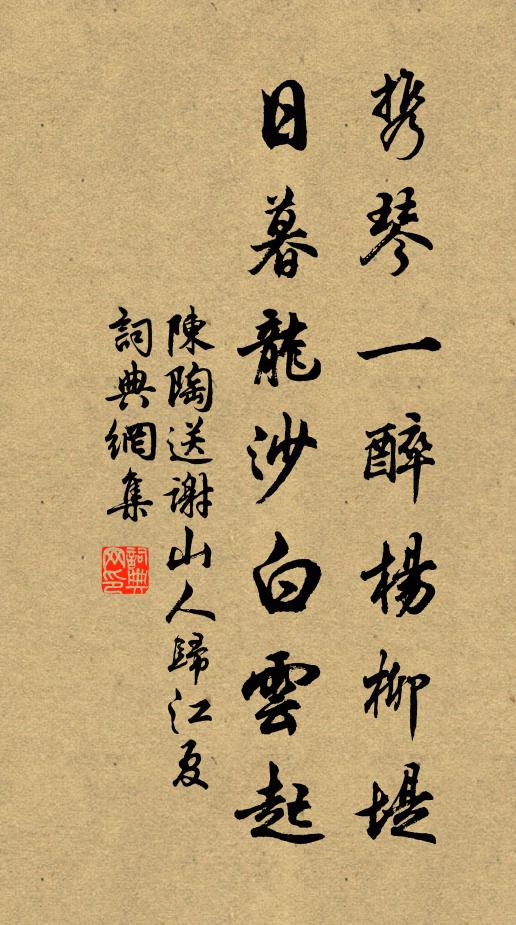 携琴一醉楊柳堤
日暮龍沙白雲起
陳陶送謝山人歸江夏
詞典網集
詞典網印